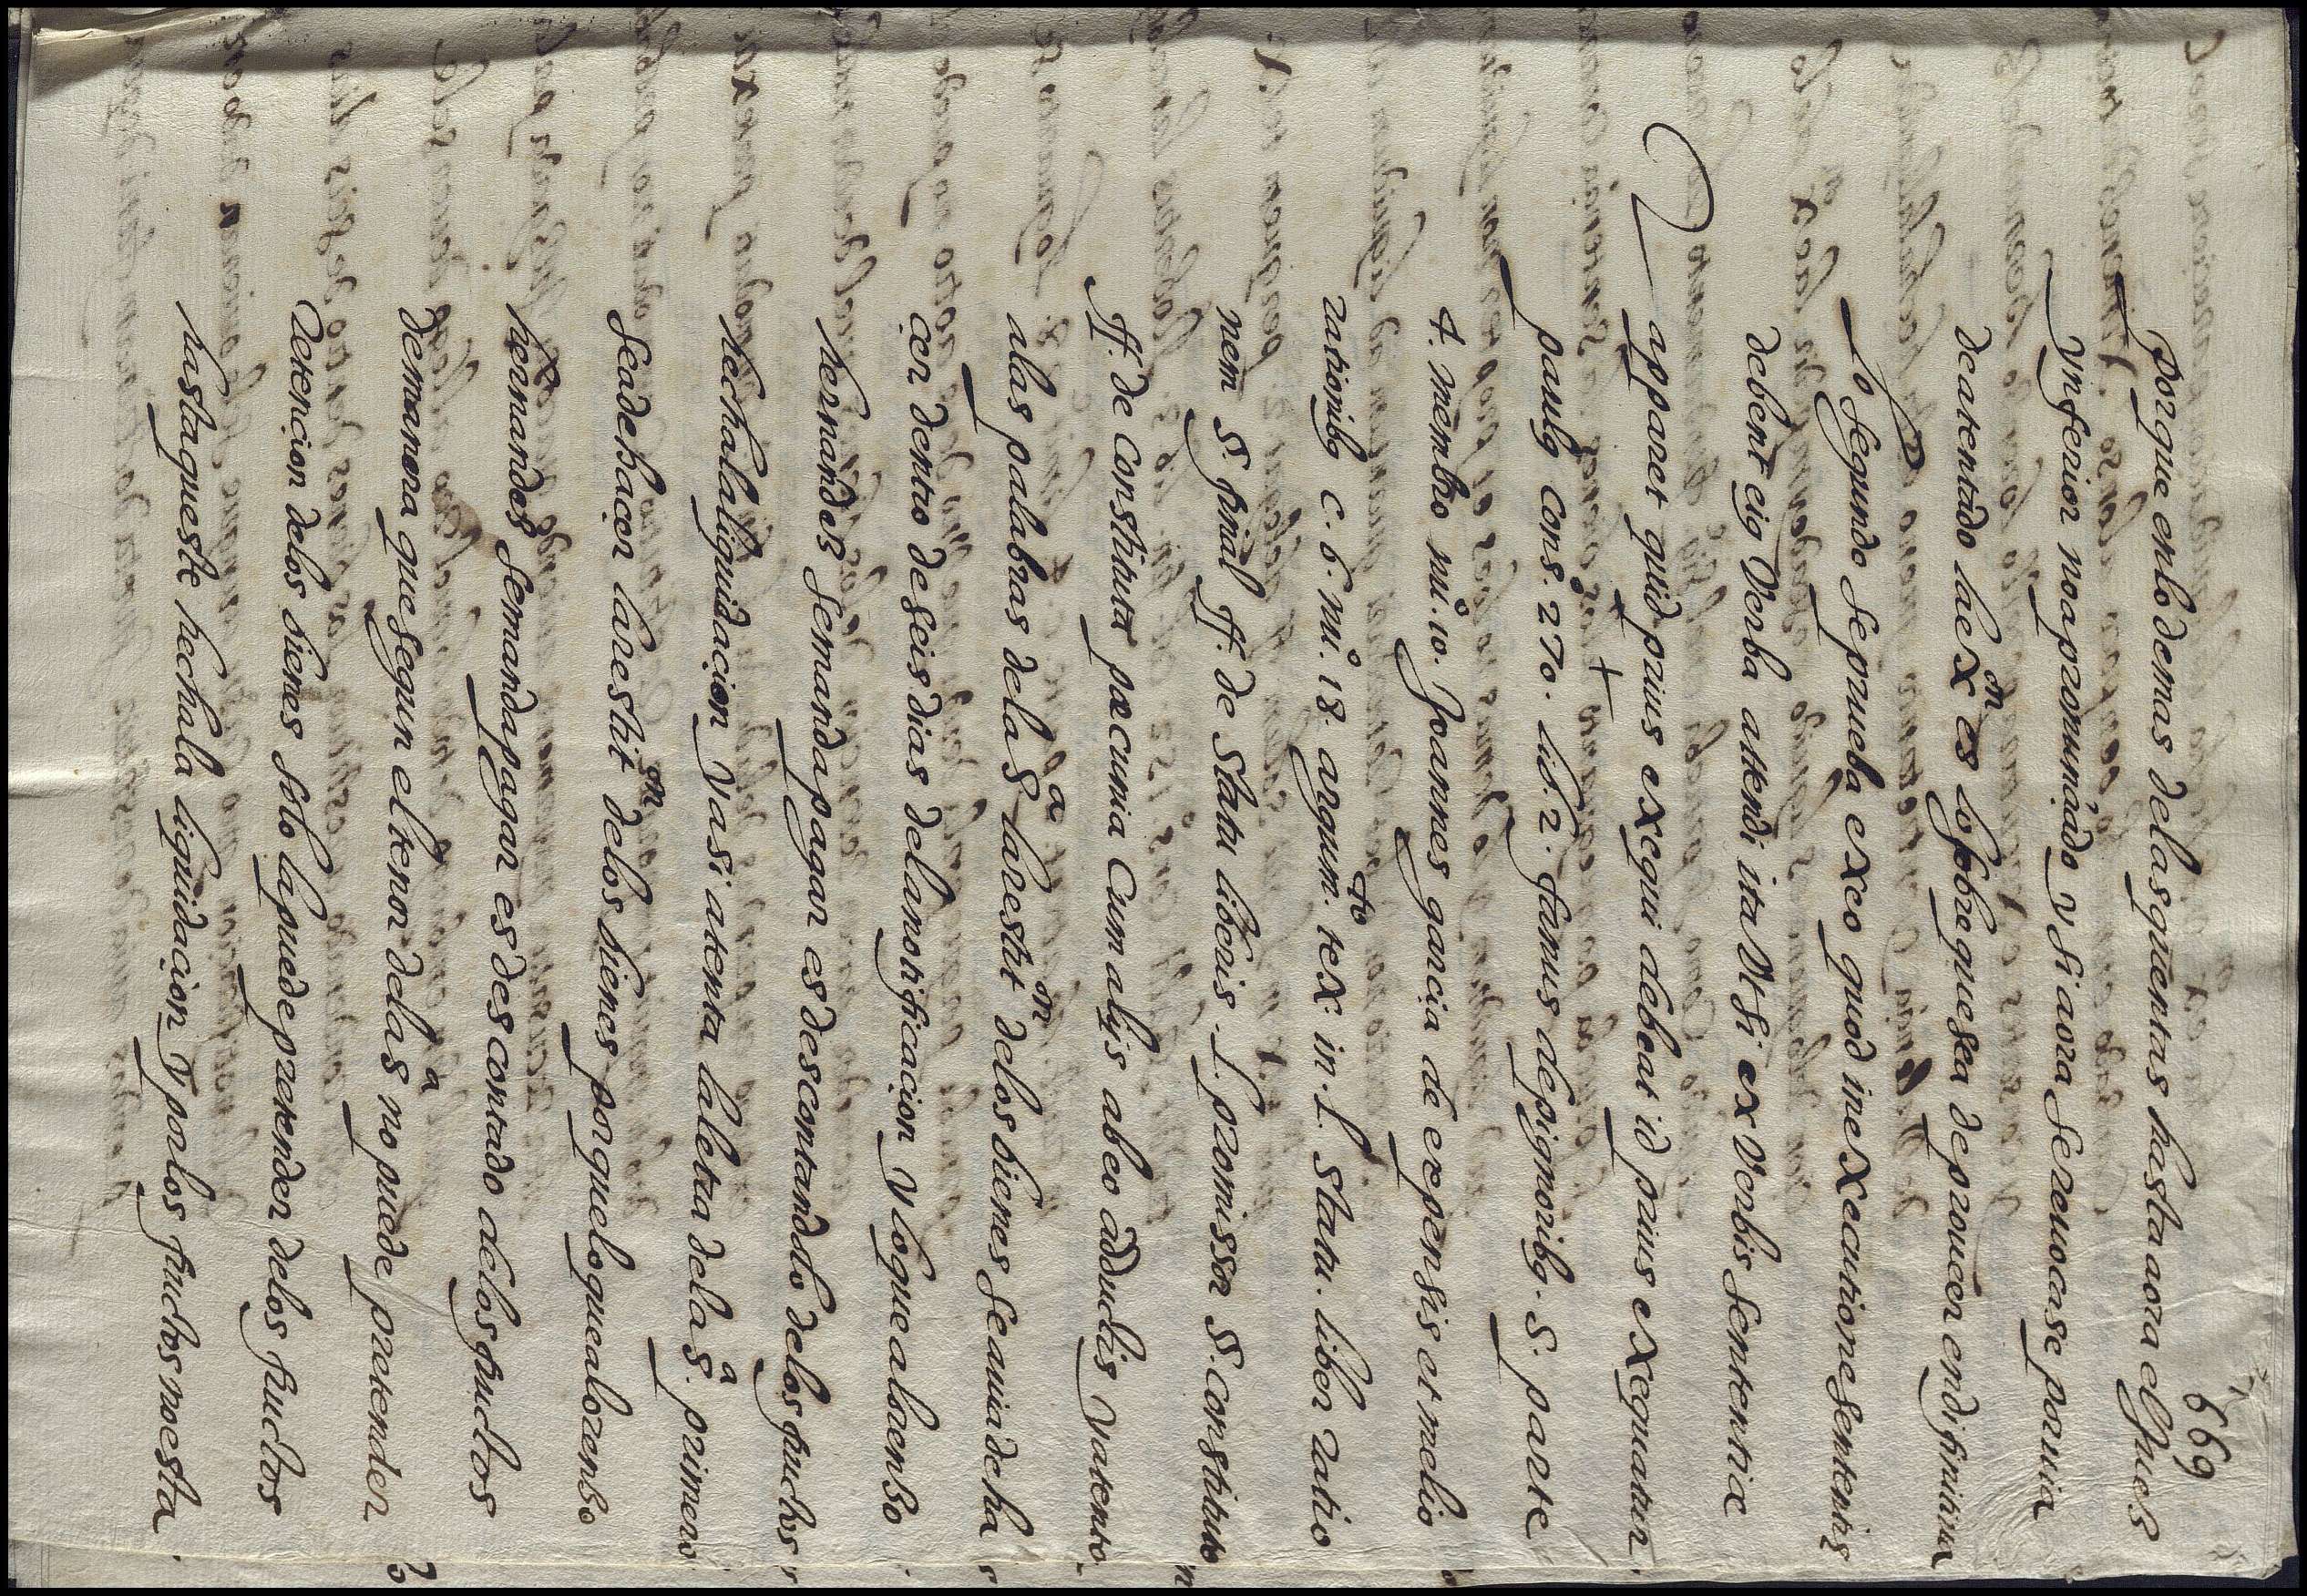 669
porque en lo demas de las quentas hasta aora el Juez
ynferior no a pronunciado y si aora se revocase por uia
de atentado la ex.on es lo sobre que sea de proueer en difinitiua
Lo segundo se prueba ex eo quod in exxecutione sententiæ
debent eiꝰ verba attendi ita vt si ex verbis sententiæ
apparet quid prius exequi debeat id prius exequatur
paulꝰ cons.º 270. lib. 2. franus de pignoribꝰ. S. parte
4. membro nu.º 10. Joannes garcia de expensis et melio
rationibꝰ c. 6. nu.º 18. argum.to tex in. l. statu. liber ratio
nem §. final ff. de statu liberis. l. promissæ §. constituto
ff. de constituta pæcunia cum alijs ab eo adductis y atento
a las palabras dela S.a la restit.on delos bienes se auia de ha
cer dentro de seis dias dela notificacion y lo que a lorenso
hernandez se manda pagar es descontandolo delos fructos
hecha la liquidaçion y asi atenta la letra dela S.a primero
sea de haçer la restit.on delos bienes porque lo que a lorenso
hernandez se manda pagar es descontado delos fructos
de manera que segun el tenor dela S.a no puede pretender
Retencion delos bienes solo la puede pretender delos fructos
hasta que este hecha la liquidaçion y por los fructos no esta